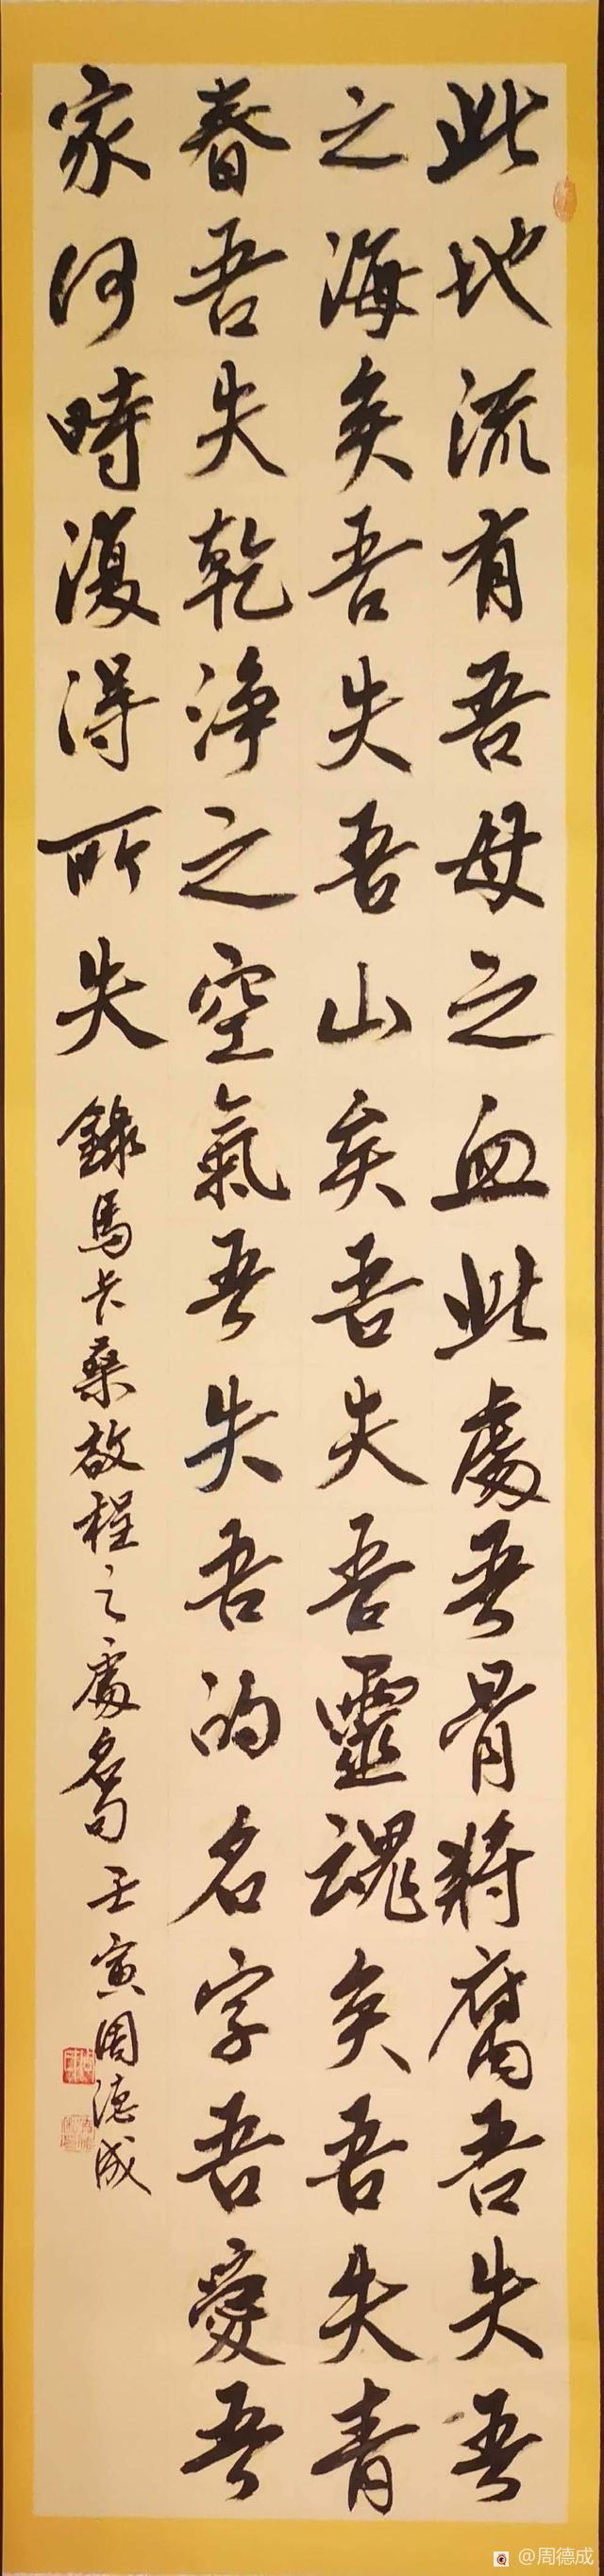 此地流有吾母之血此處吾骨將腐吾失吾
之海矣吾失吾山矣吾失吾靈魂矣吾失青
春吾失乾淨之空氣吾失吾的名字吾愛吾
家何時復得所失
錄馬卡桑故程之處名句 壬寅周德成
@周德成